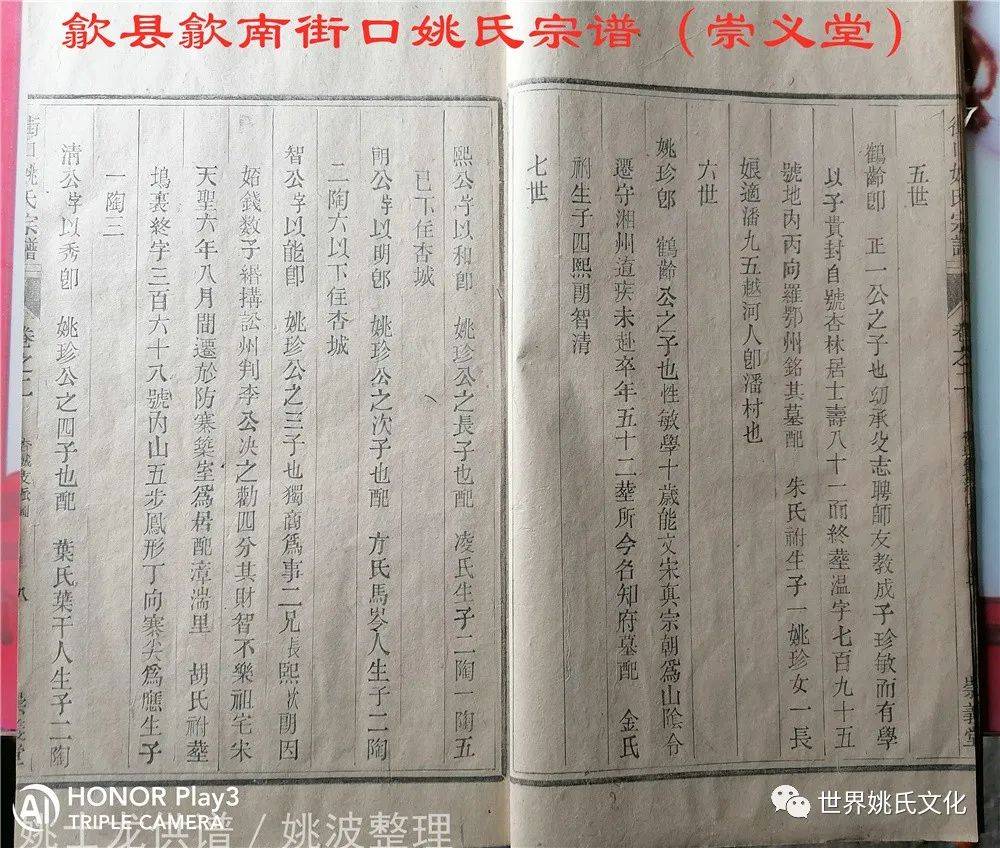 歙县歙南街口姚氏宗谱（崇义堂）
五世
鶴齡卽　正一公之子也幼承父志聘師友教成子珍敏而有學
以子貴封自號杏林居士壽八十一而終塟温字七百九十五
號地內丙向羅鄂州銘其墓配　朱氏祔生子一姚珍女一長
娘適潘九五越河人卽潘村也
六世
姚珍卽　鶴齡公之子也性敏學十歲能文宋真宗朝爲山陰令
遷守湘州道疾未赴卒年五十二塟所今名知府墓配　金氏
祔生子四熙朗智清
七世
熙公字以和卽　姚珍公之長子也配　凌氏生子二陶一陶五
已下住杏城
朗公字以明卽　姚珍公之次子也配　方氏馬岑人生子二陶
二陶六以下住杏城
智公字以能卽　姚珍公之三子也獨商爲事二兄長熙次朗因
姤錢数子緡搆訟州判李公决之勸四分其財智不樂祖宅宋
天聖六年八月間遷於防寨築室爲居配漳湍里　胡氏祔塟
塢裏終字三百六十八號內山五步鳳形丁向寨尖爲應生子
一陶三
清公字以秀卽　姚珍公之四子也配　葉氏葉干人生子二陶
街口姚氏宗譜
卷之二
崇義堂
HONOR Play3
TRIPLE CAMERA
姚士龙供谱 / 姚波整理
世界姚氏文化